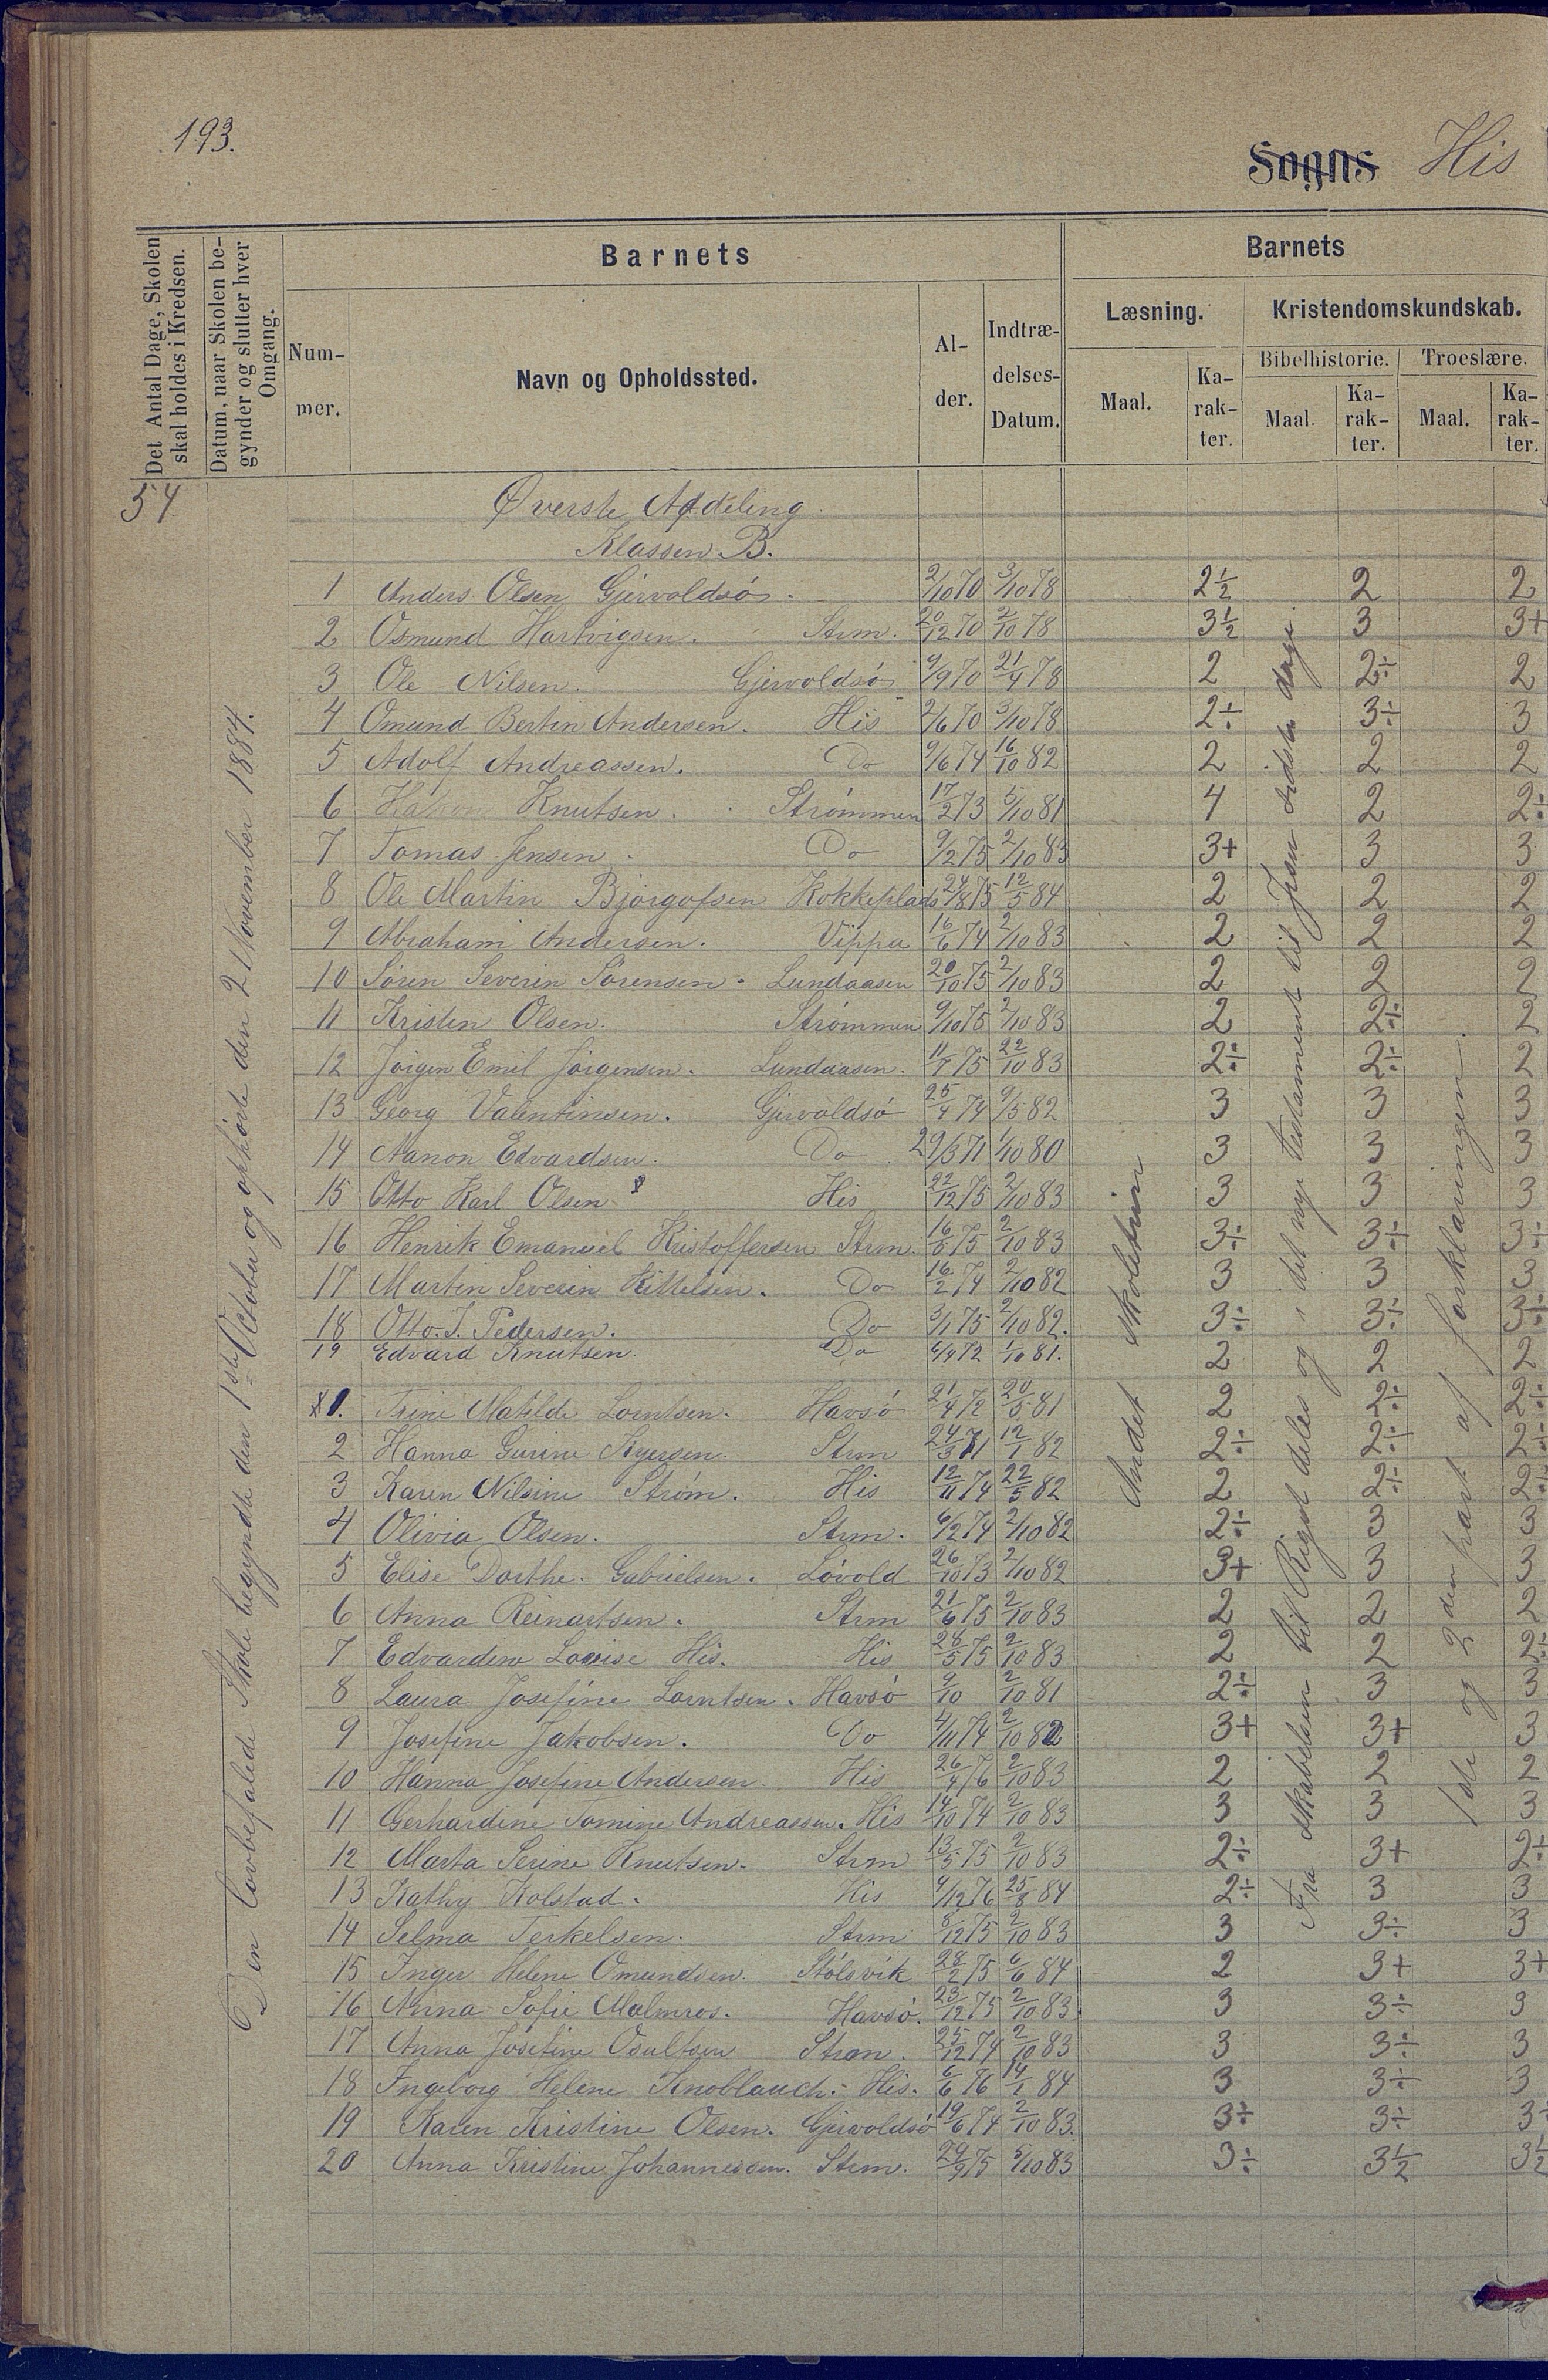 193.
Sogns His
Det Antal Dage, Skolen skal holdes i Kredsen.
Datum, naar Skolen begynder og slutter hver Omgang.
Barnets
Barnets
Nummer.
Navn og Opholdssted.
Alder.
Indtrædelses-Datum.
Læsning.
Kristendomskundskab.
Maal.
Karakter.
Bibelhistorie.
Troeslære.
Maal.
Karakter.
Maal.
Karakter.
54
Øverste Afdeling
Klassen B.
Den lovbefalede Skole begyndte den 1ste October og ophørte den 2 November 1884.
Andet Skoletrin
Fra Skabelsen til Riget deles og i det nye testament til Jesu sidste dage
1ste og 2den part af forklaringen.
1 Anders Olsen Gjervoldsø. 2/10 70 3/10 78 2½ 2 2
2 Osmund Hartvigsen. Strm. 20/12 70 2/10 78 3½ 3 3+
3 Ole Nilsen. Gjervoldsø 9/9 70 21/4 78 2 2÷ 2
4 Omund Bertin Andersen. His 2/6 70 3/10 78 2÷ 3÷ 3
5 Adolf Andreassen. Do 9/6 74 16/10 82 2 2 2
6 Håkon Knutsen. Strømmen 17/2 73 5/10 81 4 2 2÷
7 Tomas Jensen. Do 9/2 75 2/10 83 3+ 3 3
8 Ole Martin Bjørgofsen Kokkeplads 24/8 75 12/5 84 2 2 2
9 Abraham Andersen. Vippa 16/6 74 2/10 83 2 2 2
10 Søren Severin Sørensen. Lundaasen 20/10 75 2/10 83 2 2 2
11 Kristen Olsen. Strømmen 9/10 75 2/10 83 2 2÷ 2
12 Jørgen Emil Jørgensen. Lundaasen. 11/7 75 22/10 83 2÷ 2÷ 2
13 Georg Valentinsen. Gjervoldsø 25/4 74 9/5 82 3 3 3
14 Aanon Edvardsen. Do 29/3 71 1/10 80 3 3 3
15 Otto Karl Olsen His 22/12 75 2/10 83 3 3 3
16 Henrik Emanuel Kristoffersen Strm. 16/5 75 2/10 83 3÷ 3÷ 3÷
17 Martin Severin Kittelsen. Do 16/2 74 2/10 82 3 3 3
18 Otto. J. Pedersen. Do 3/1 75 2/10 82. 3÷ 3÷ 3÷
19 Edvard Knutsen. Do 6/4 72 1/10 81. 2 2 2
1. Trine Matilde Lorntsen. Havsø 21/4 72 20/5 81 2 2÷ 2÷
2 Hanna Gurine Ayersen. Strm 24/3 71 12/1 82 2÷ 2÷ 2÷
3 Karen Nilsine Strøm. His 12/11 74 22/5 82 2 2÷ 2÷
4 Olivia Olsen. Strm. 6/2 74 2/10 82 2÷ 3 3
5 Elise Dorthe. Gabrielsen. Løvold 26/10 73 2/10 82 3+ 3 3
6 Anna Reinartsen. Strm 21/6 75 2/10 83 2 2 2
7 Edvardine Lovise His. His 28/5 75 2/10 83 2 2 2÷
8 Laura Josefine Lorntsen. Havsø 9/10 2/10 81 2÷ 3 3
9 Josefine Jakobsen. Do 4/11 74 2/10 82 3+ 3+ 3
10 Hanna Josefine Andersen. His 26/4 76 2/10 83 2 2 2
11 Gerhardine Tomine Andreassen. His 14/10 74 2/10 83 3 3 3
12 Marta Serine Knutsen. Strm 13/5 75 2/10 83 2÷ 3+ 2÷
13 Kathy Kolstad. His 4/12 76 25/8 84 2÷ 3 3
14 Selma Terkelsen. Strm 8/12 75 2/10 83 3 3÷ 3
15 Inger Helene Omundsen. Stølsvik 28/2 75 6/6 84 2 3+ 3+
16 Anna Sofie Malmros. Havsø. 23/12 75 2/10 83. 3 3÷ 3
17 Anna Josefine Osultsen Strm. 25/12 74 2/10 83 3 3÷ 3
18 Ingeborg Helene Knoblauch. His. 6/6 76 14/1 84 3 3÷ 3
19 Karen Kristine Olsen. Gjervoldsø 19/6 74 2/10 83. 3÷ 3÷ 3÷
20 Anna Kristine Johannessen. Strm. 29/9 75 5/10 83 3÷ 3½ 3½